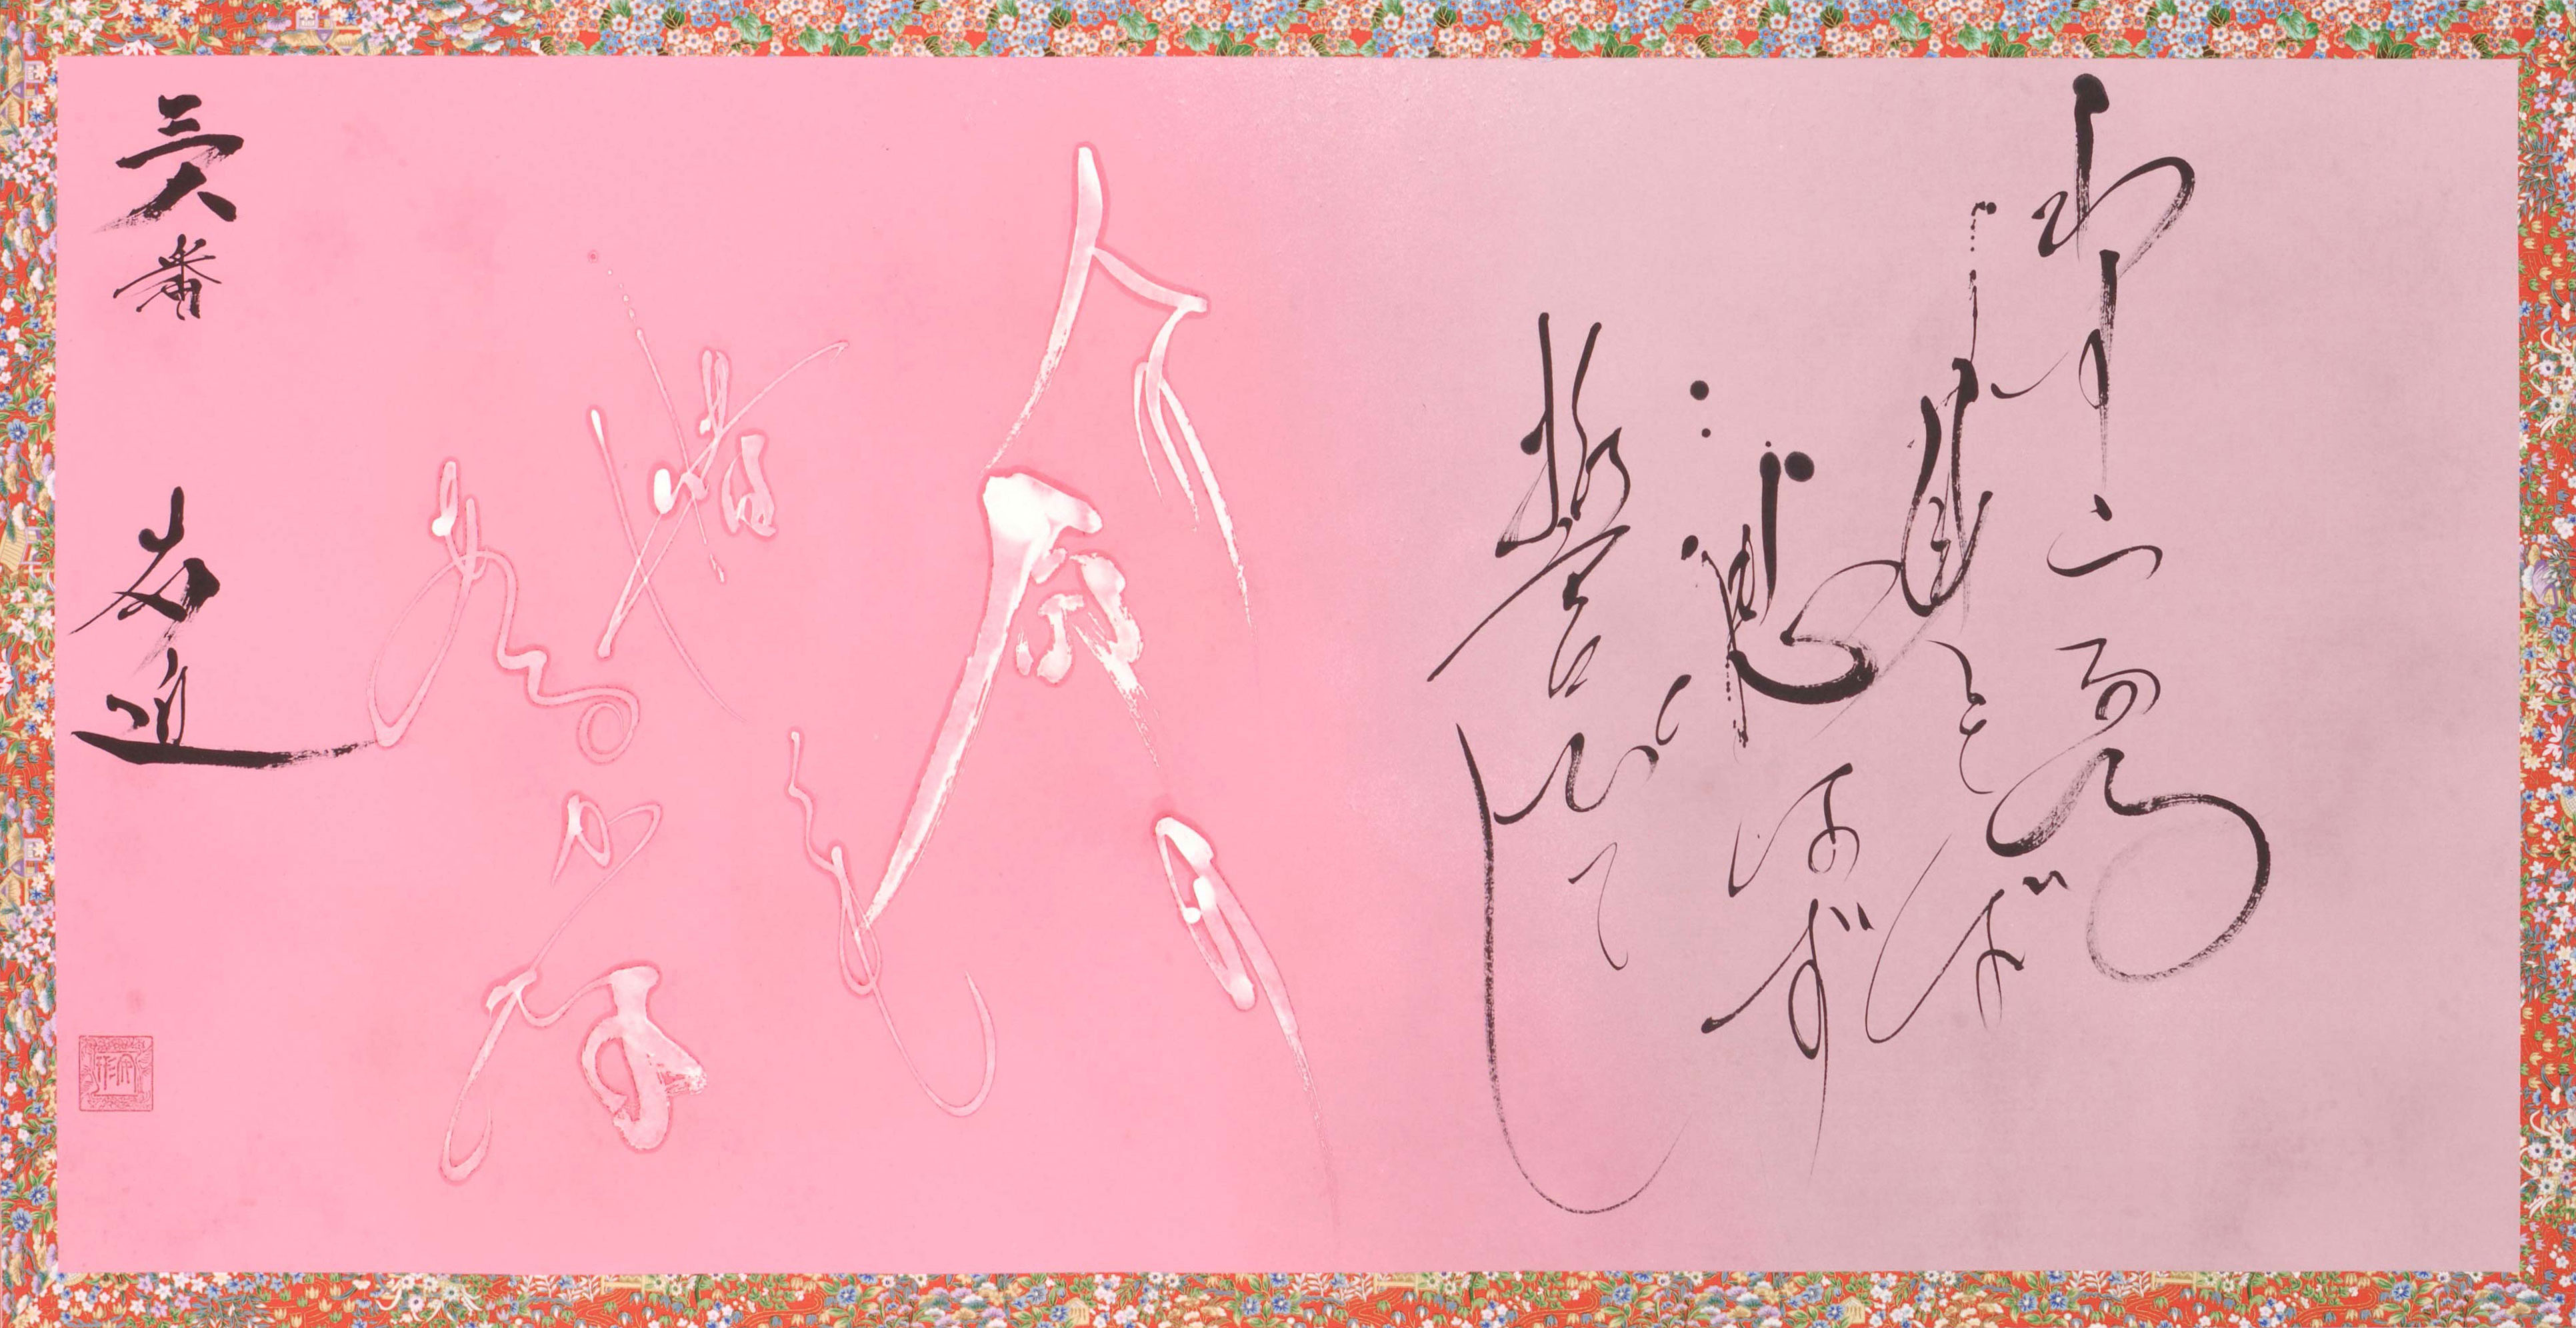 わすらるる
身をば
思はず
誓ひてし
人の
命の
惜しく
もある
かな
三八番 右近